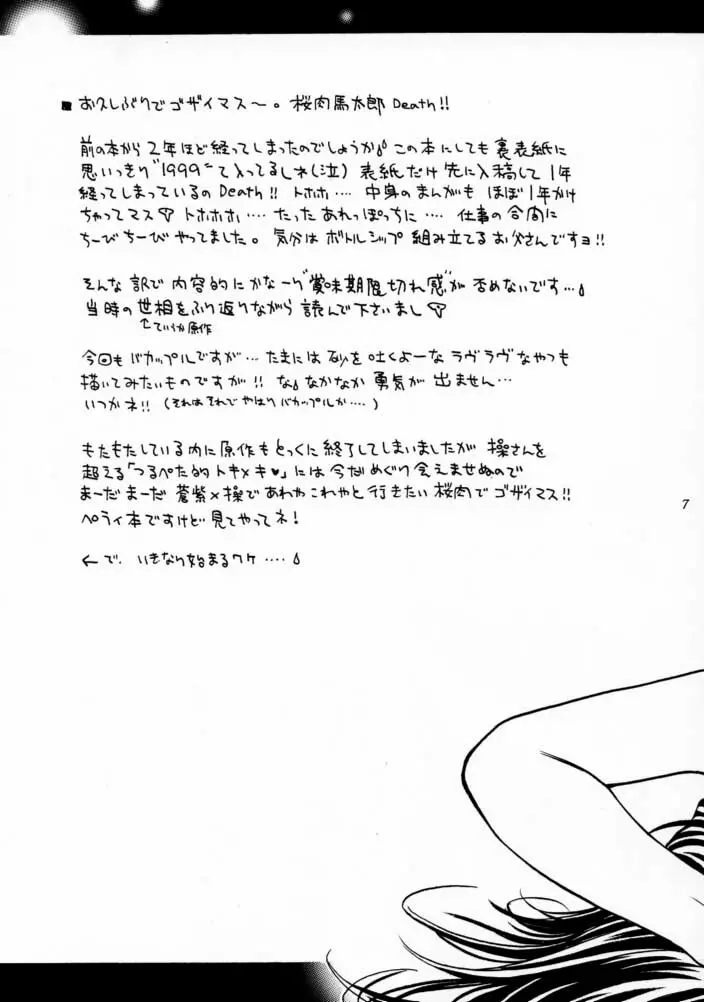 ■ お久しぶりでゴザイマス〜。桜肉馬太郎Death!!
前の本から2年ほど経ってしまったのでしょうか この本にしても裏表紙に
思いっきり"1999"て入ってるしネ(泣) 表紙だけ先に入稿して1年
経ってしまっているのDeath!! トホホ…. 中身のまんがも ほぼ1年かけ
ちゃってマス トホホホ…. たった あれっぽっちに…. 仕事の合間に
ちーびちーびやってました。気分はボトルシップ組み立てるお父さんですヨ!!
そんな訳で内容的にかな〜り"賞味期限切れ感"が否めないです…
当時の世相をふり返りながら読んで下さいまし
↑ていうか原作
今回もバカップルですが… たまには砂を吐くよーなラヴラヴなやつも
描いてみたいものですが!! な、なかなか勇気が出ません…
いつかネ!! (それはそれでやはりバカップルか….)
もたもたしている内に原作もとっくに終了してしまいましたが 操さんを
超える「つるぺた的トキメキ♥」には今だめぐり会えませぬので
まーだまーだ 蒼紫×操であれやこれやと行きたい桜肉でゴザイマス!!
ペラィ本ですけど見てやってネ!
← で、いきなり始まるワケ….
7